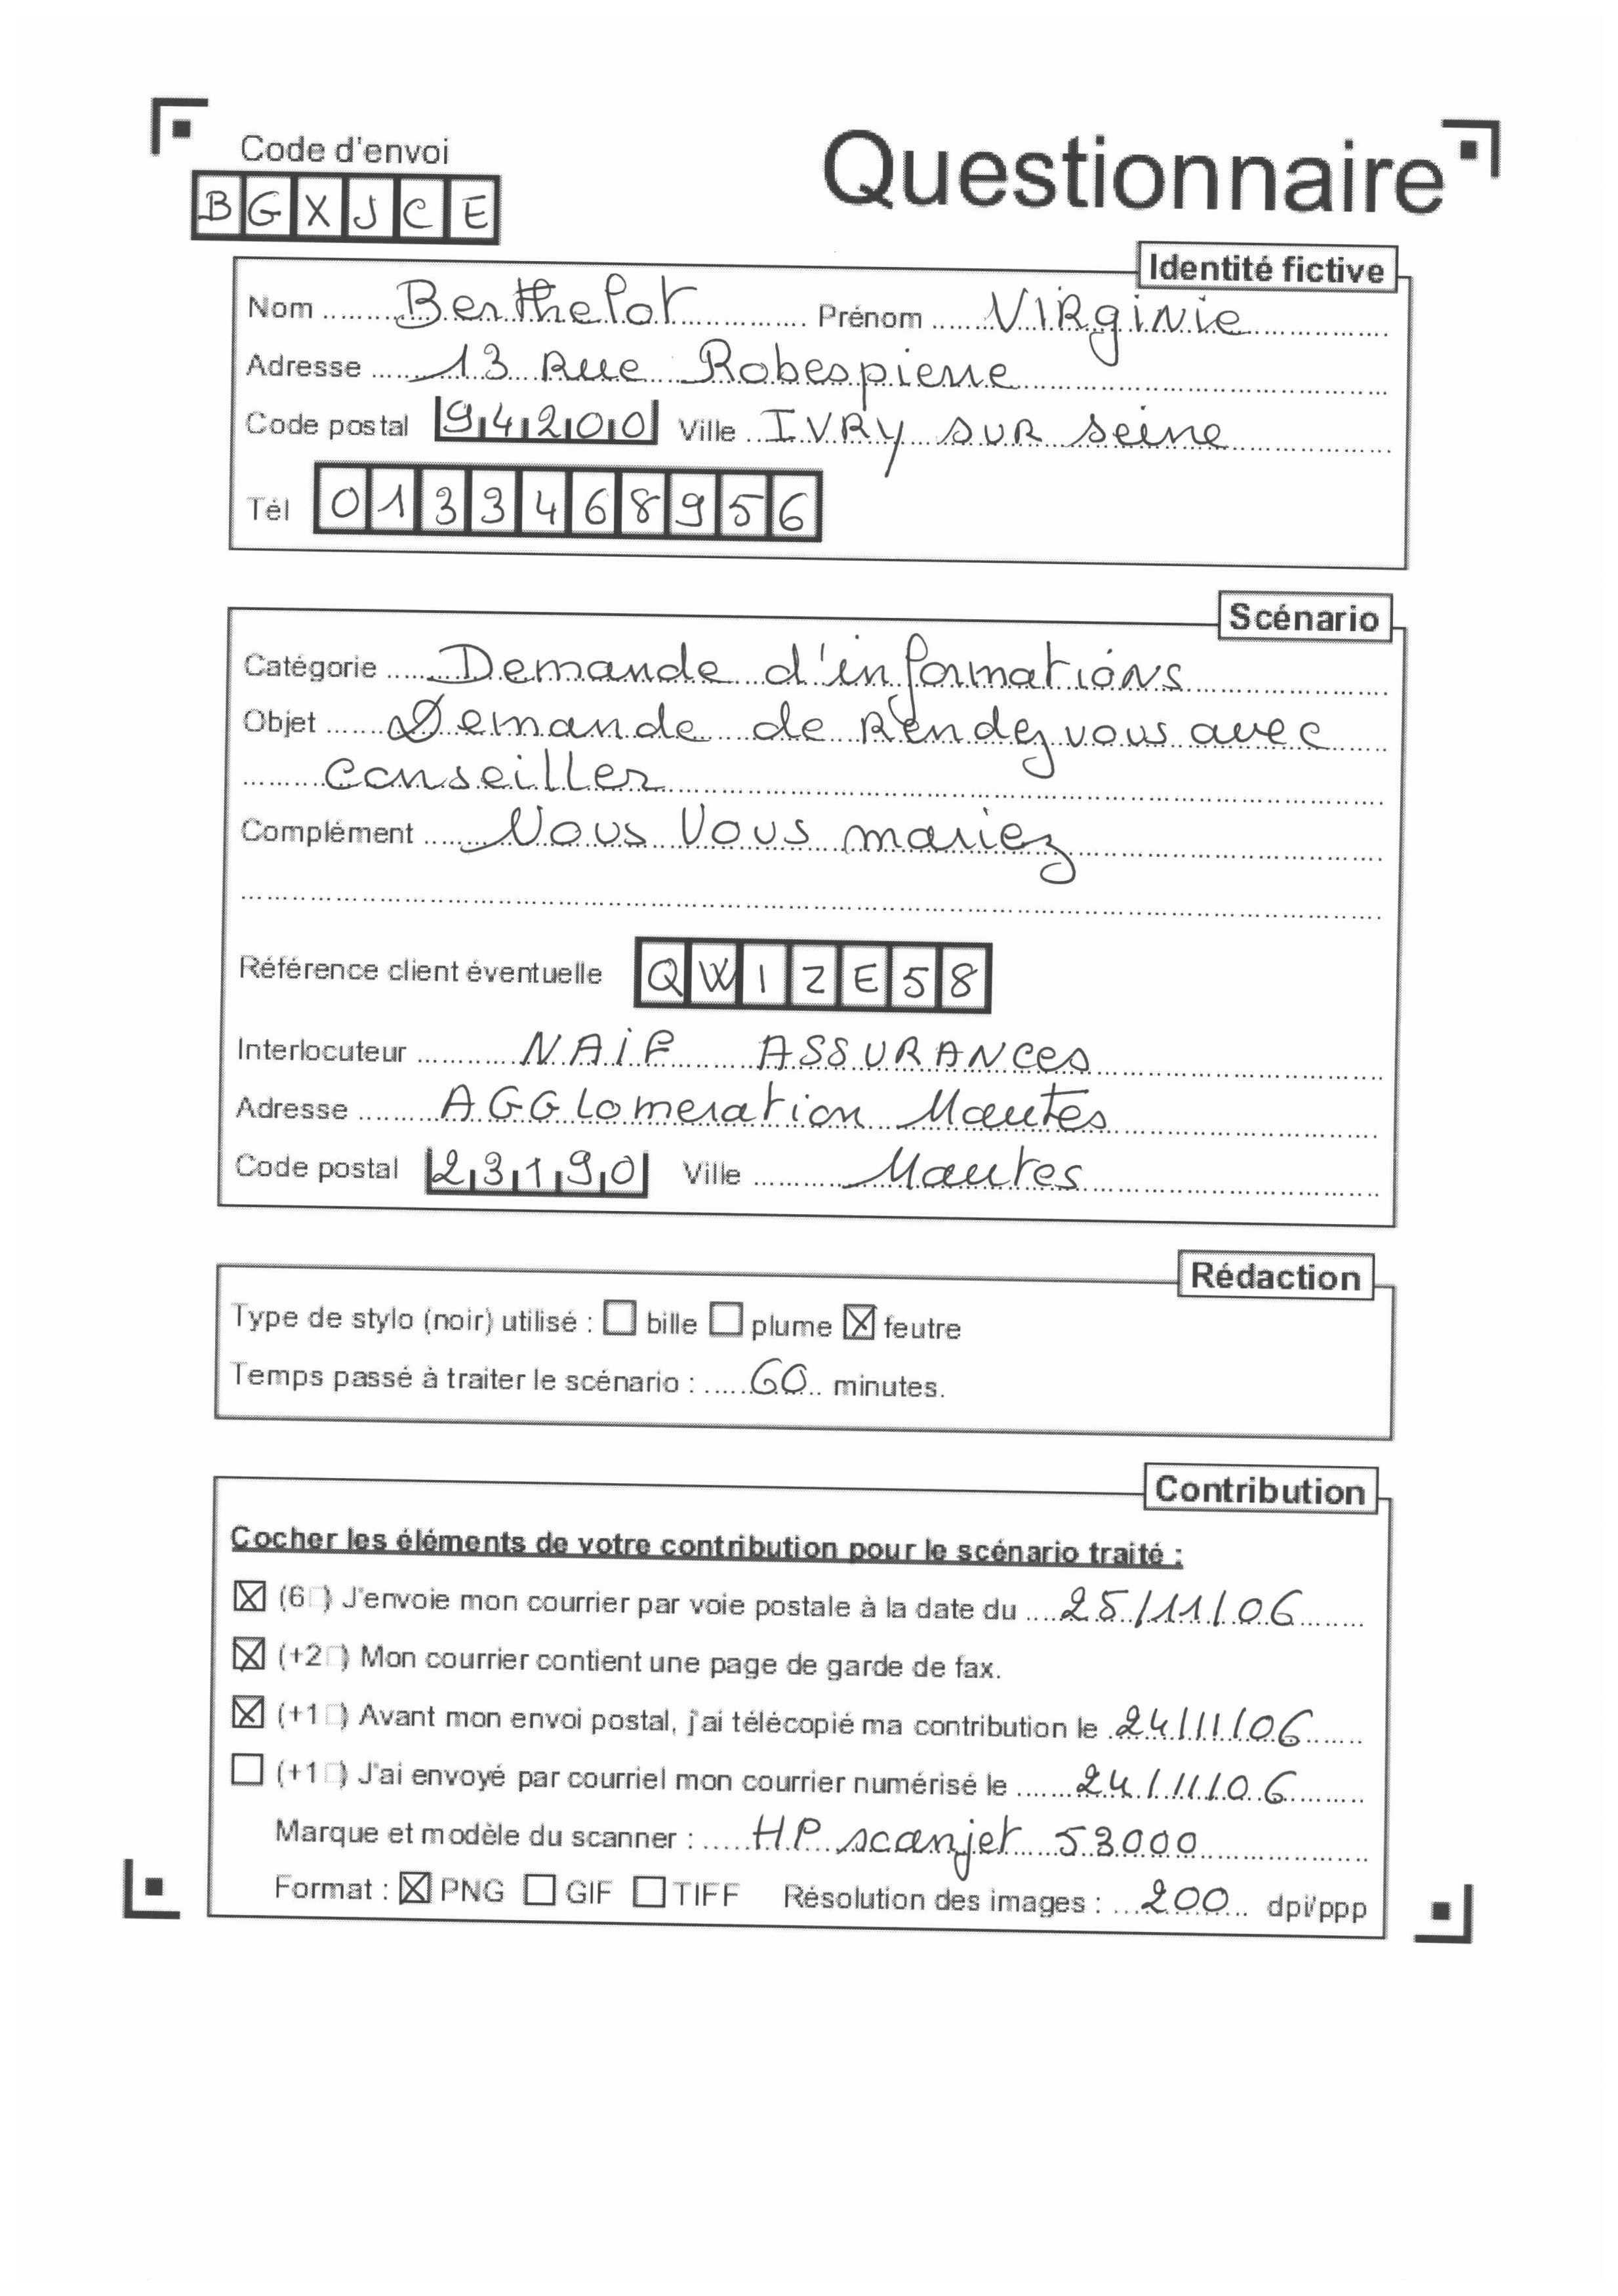 Code d'envoi
BGXJCE
Questionnaire
Identité fictive
Nom Berthelot Prénom Virginie
Adresse 13 Rue Robespierre
Code postal 94200 Ville IVRY sur seine
Tél 0133468956
Scénario
Catégorie Demande d'informations
Objet Demande de Rendez vous avec
conseiller
Complément Vous Vous mariez
Référence client éventuelle QWIZE58
Interlocuteur NAiF ASSURANCes
Adresse AGGLomeration Mautes
Code postal 23190 Ville Mautes
Rédaction
Type de stylo (noir) utilisé : bille plume feutre
Temps passé à traiter le scénario : 60 minutes.
Contribution
Cocher les éléments de votre contribution pour le scénario traité :
(6 ) J'envoie mon courrier par voie postale à la date du 25/11/06
(+2 ) Mon courrier contient une page de garde de fax.
(+1 ) Avant mon envoi postal, j'ai télécopié ma contribution le 24/11/06
(+1 ) J'ai envoyé par courriel mon courrier numérisé le 24/11/06
Marque et modèle du scanner : HP scanjet 53000
Format : PNG GIF TIFF Résolution des images : 200 dpi/ppp